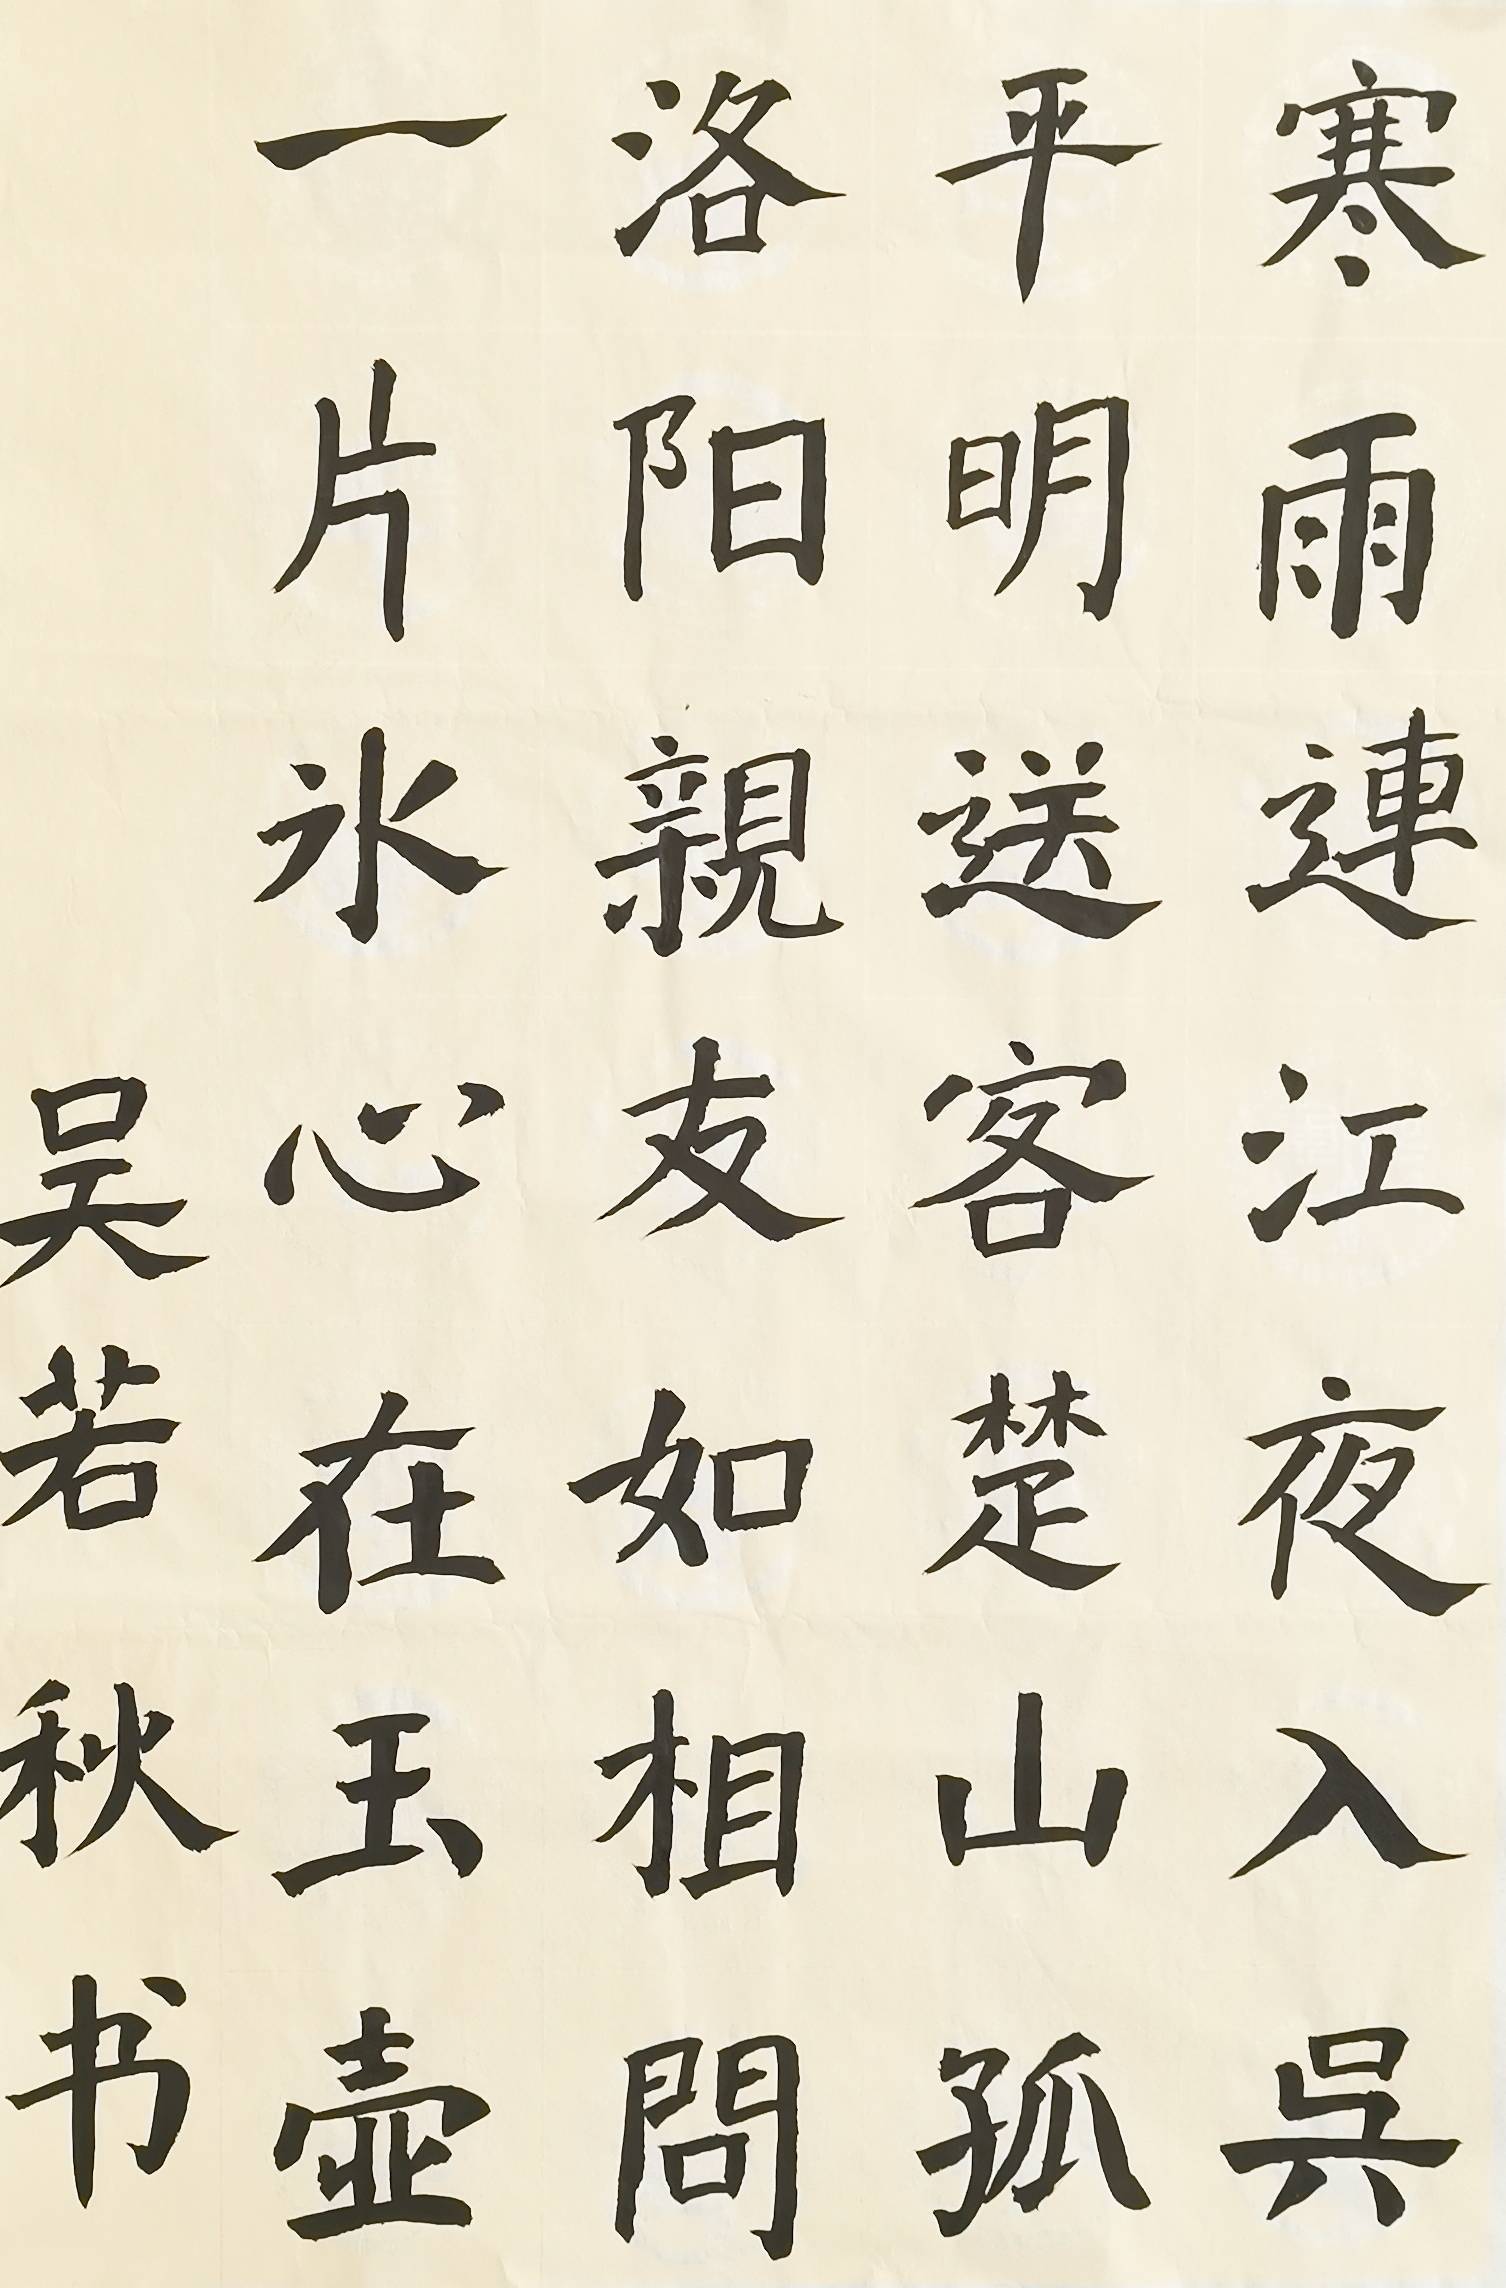 寒雨連江夜入吳
平明送客楚山孤
洛阳親友如相問
一片氷心在玉壺
吴若秋书